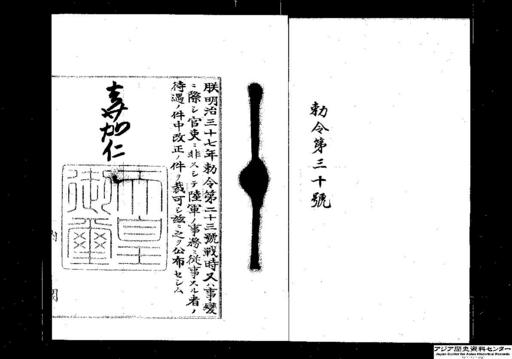 勅令第三十號
朕明治三十七年勅令第二十三號戰時又ハ事變
ニ際シ官吏ニ非スシテ陸軍ノ事務ニ從事スル者ノ
待遇ノ件中改正ノ件ヲ裁可シ玆ニ之ヲ公布セシム
嘉仁
天皇
御璽
内
閣
アジア歴史資料センター
Japan Center for Asian Historical Records